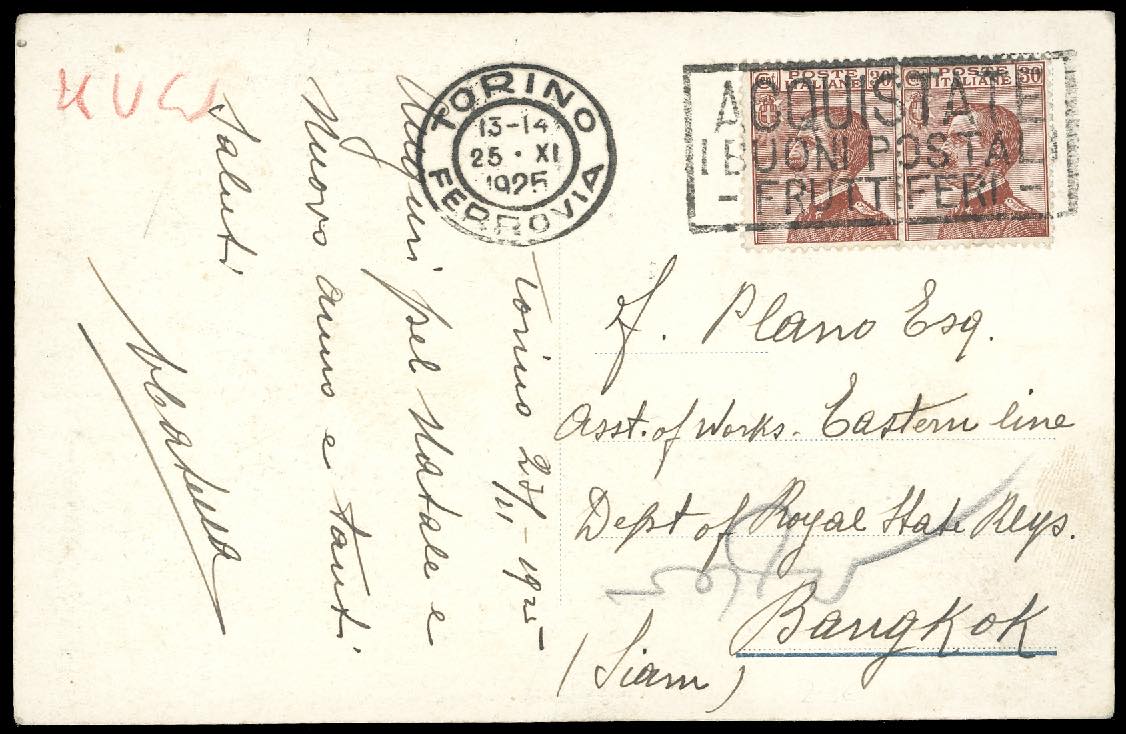 TORINO
13-14
25 · XI
1925
FERROVIA
ACQUISTATE
I BUONI POSTALI
- FRUTTIFERI -
POSTE ITALIANE 30
POSTE ITALIANE 30
Torino
/11 - 1925
Auguri pel Natale e
Nuovo anno e tanti
Saluti
f. Plano Esq.
Asst. of Works. Eastern line
Dept of Royal State Rlys.
Bangkok
(Siam)